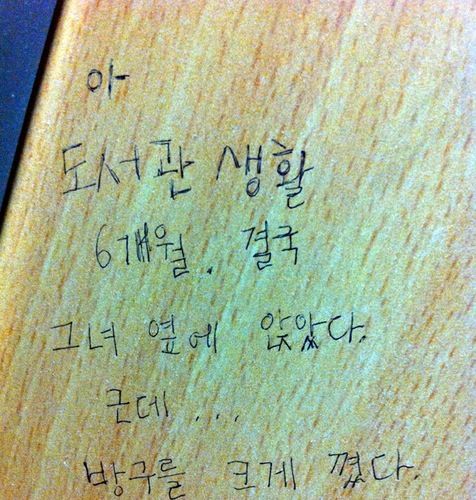 아
도서관 생활
6개월. 결국
그녀 옆에 앉았다.
근데...
방구를 크게 꼈다.